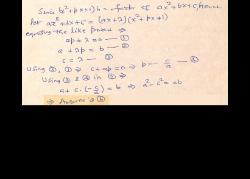 Since (x²+px+1) is a factor of ax³+bx+c, hence
Let ax³+bx+c = (ax+λ)(x²+px+1)
equating the like powers ⇒
ap+λ=0 — ①
a+λp=b — ②
c=λ — ③
Using ①, ③ ⇒ c+ap=0 ⇒ p=-c/a — ④
Using ③ & ④ in ② ⇒
a+c·(-c/a)=b ⇒ a²-c²=ab
⇒ Answer is